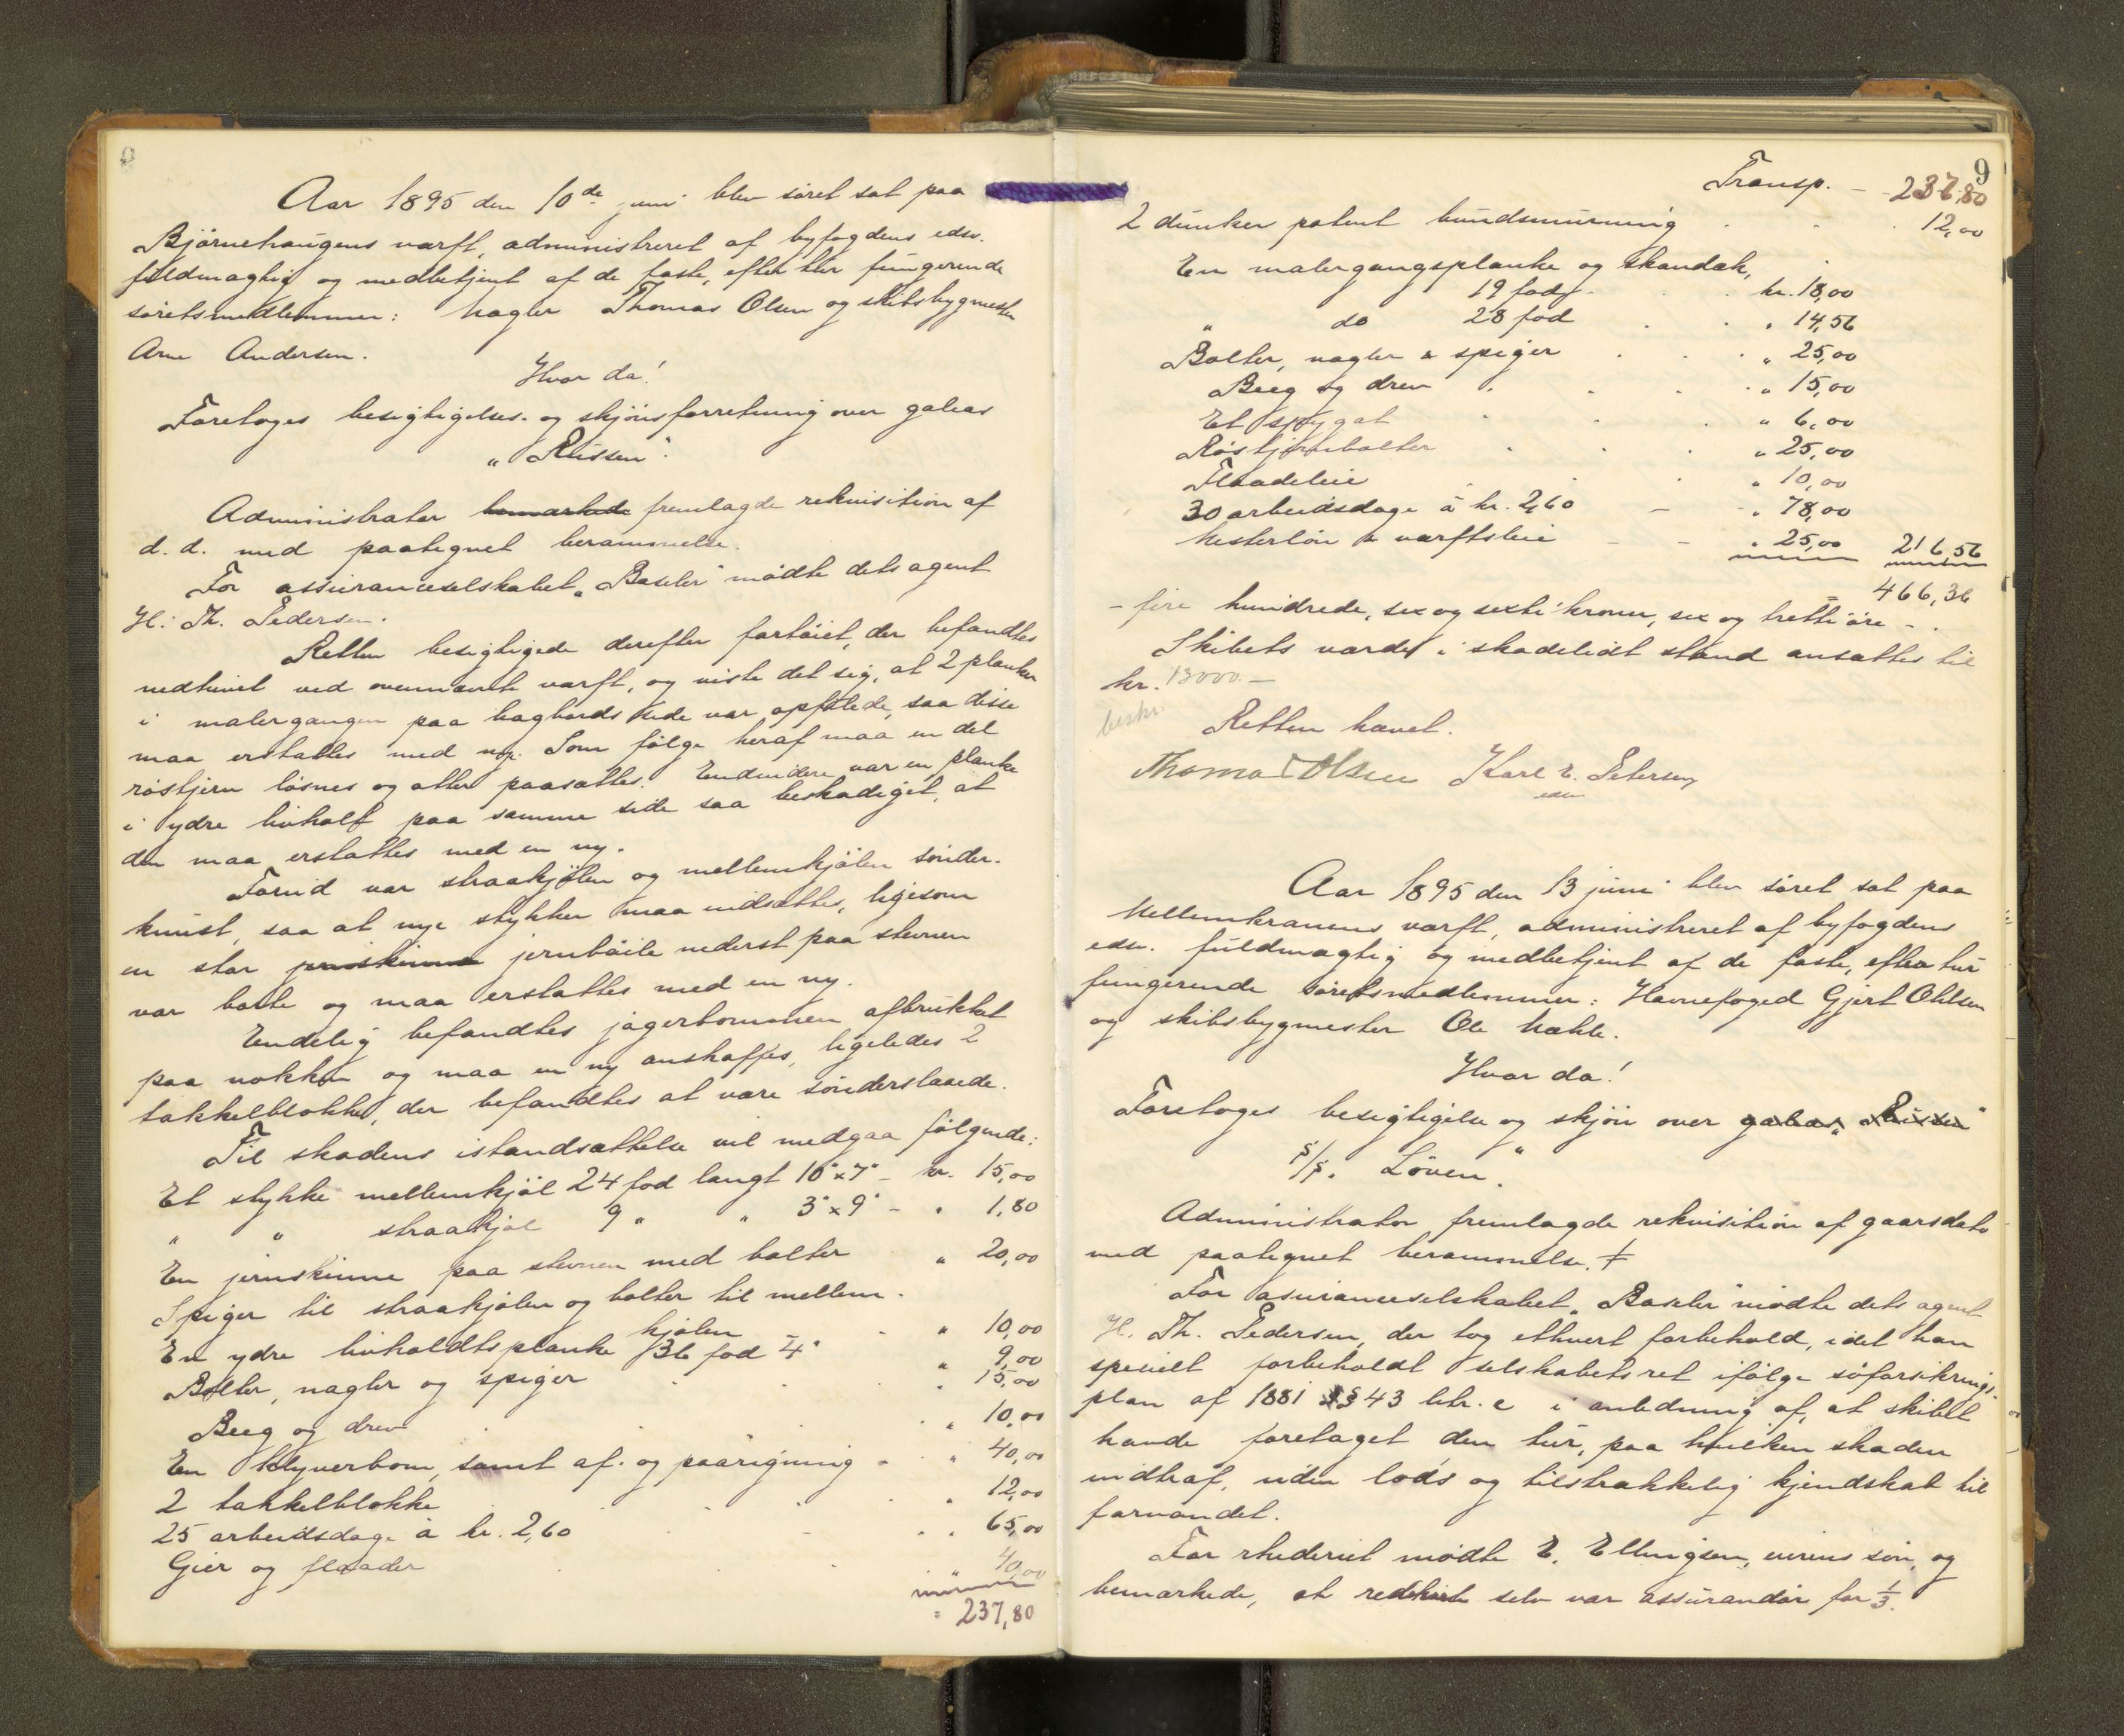 Aar 1895 den 10de juni blev søret sat paa
Bjørnehaugens værft, administreret af byfogdens edsv.
fuldmægtig og medbetjent af de faste, efter tur fungerende
søretsmedlemmer: Mægler Thomas Olsen og skibsbygmester
Arne Andersen.
Hvor da!
Foretoges besigtigelses- og skjønsforretning over galeas
"Russen".
Administrator bemærkede fremlagde rekvisition af
d. d. med paategnet berammelse.
For assuranceselskabet "Baseler" mødte dets agent
H. Th. Pedersen.
Retten besigtigede derefter fartøiet, der befandtes
nedhivet ved ovennævnte værft, og viste det sig, at 2 planker
i malergangen paa bagbords side var opflisede, saa disse
maa erstattes med nye. Som følge heraf maa en del
røstjern løsnes og atter paasættes. Endvidere var en planke
i ydre livholt paa samme side saa beskadiget, at
den maa erstattes med en ny.
Forud var straakjølen og mellemkjølen sønder-
knust, saa at nye stykker maa indsættes, ligesom
en stor jernskinne jernbøile nederst paa stevnen
var borte og maa erstattes med en ny.
Endelig befandtes jagerbommen afbrukket
paa nokken og maa en ny anskaffes, ligeledes 2
takkelblokke, der befandtes at være sønderslaaede.
Til skadens istandsættelse vil medgaa følgende:
Et stykke mellemkjøl 24 fod langt 10"x7" - kr. 15,00
" " straakjøl 9 " " 3"x9" - " 1,80
En jernskinne paa stevnen med bolter " 20,00
Spiger til straakjølen og bolter til mellem-
kjølen - " 10,00
En ydre livholdtsplanke 36 fod 4" " 9,00
Bolter, nagler og spiger " 15,00
Beeg og drev " 10,00
En klyverbom, samt af- og paarigning " 40,00
2 takkelblokke " 12,00
25 arbeidsdage à kr. 2,60 " 65,00
Gier og flaader " 40,00
= 237,80
9
Transp. - - 237,80
2 dunker patent bundsmurning 12,00
En malergangsplanke og skandæk,
19 fod kr. 18,00
" do 28 fod " 14,56
Bolter, nagler & spiger " 25,00
Beeg og drev " 15,00
Et spygat " 6,00
Røstjernbolter " 25,00
Flaadeleie " 10,00
30 arbeidsdage à kr. 2,60 - - " 78,00
Mesterløn & værftsleie - - " 25,00 216,56
= 466,36
- fire hundrede, sex og sexti kroner, sex og tretti øre -
Skibets værdi i skadelidt stand ansættes til
kr. 13000.-
beskr.
Retten hævet.
Thomas Olsen Karl E. Petersen
edsv
Aar 1895 den 13 juni blev søret sat paa
Mellemkranens værft, administreret af byfogdens
edsv. fuldmægtig og medbetjent af de faste, efter tur
fungerende søretsmedlemmer: Havnefoged Gjert Ohlsen
og skibsbygmester Ole Mæhle.
Hvor da!
Foretoges besigtigelse og skjøn over galeas "Russen"
S/S. "Løven".
Administrator fremlagde rekvisition af gaarsdato
med paategnet berammelse. ⌿
For asuranceselskabet "Baseler" mødte dets agent
H. Th. Pedersen, der tog ethvert forbehold, idet han
specielt forbeholdt selskabets ret ifølge søforsikrings-
plan af 1881 § 43 litr. c i anledning af, at skibet
havde foretaget den tur, paa hvilken skaden
indtraf, uden lods og tilstrækkelig kjendskab til
farvandet.
For rhederiet mødte E. Ellingsen, eierens søn, og
bemærkede, at rederiet selv var assurandør for 1/3.